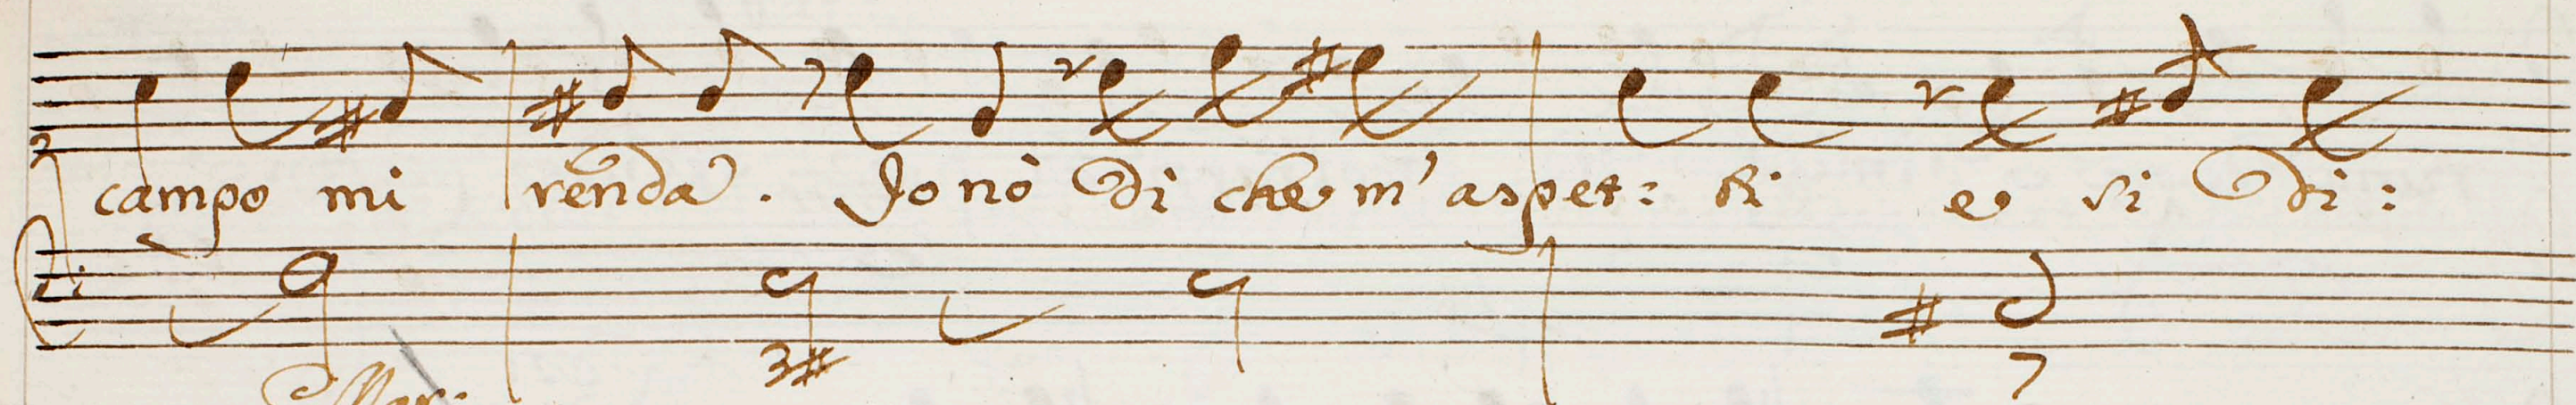 campo mi renda. Io nò di che m'aspet: ti e si di:
3# 7
Mar: